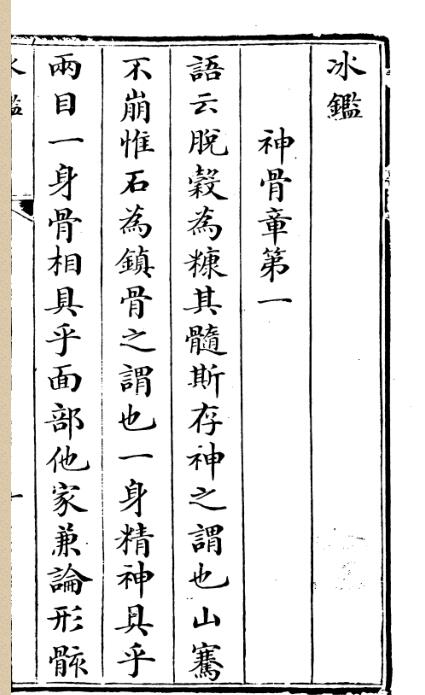 冰鑑
神骨章第一
語云脫穀為糠其髓斯存神之謂也山騫
不崩惟石為鎮骨之謂也一身精神具乎
兩目一身骨相具乎面部他家兼論形骸